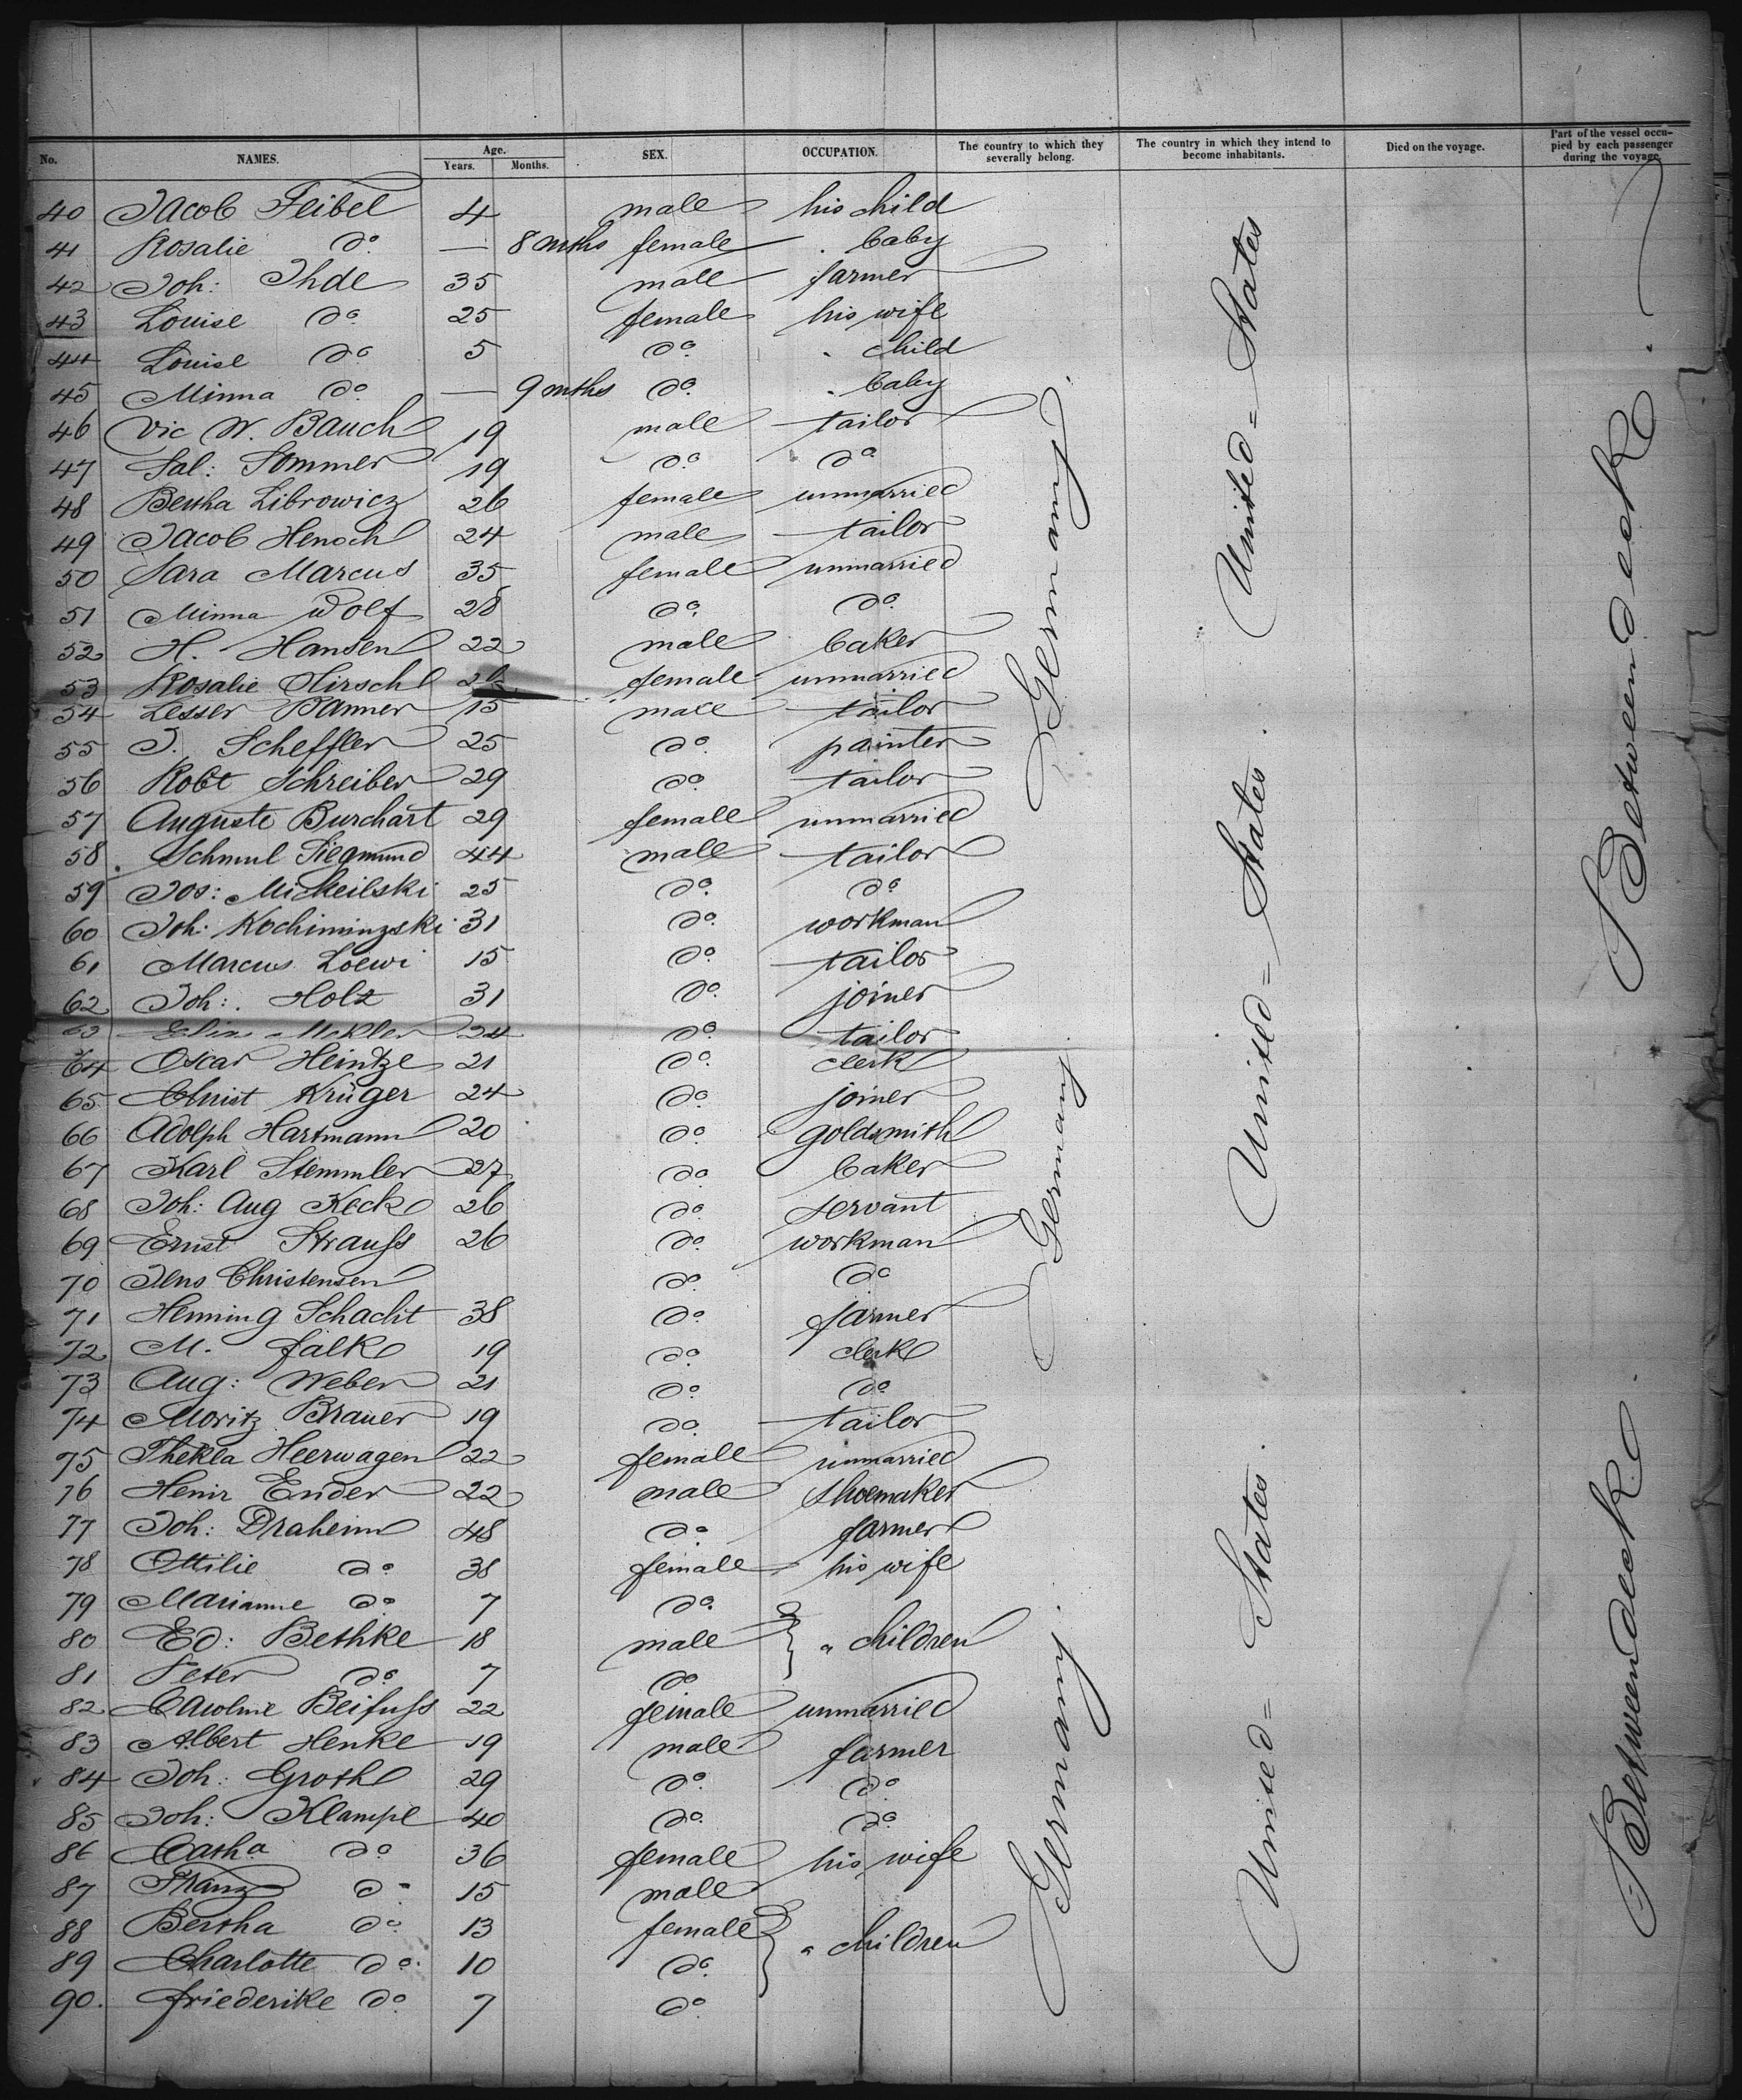 No. NAMES. Age. Years. Months. SEX. OCCUPATION. The country to which they severally belong. The country in which they intend to become inhabitants. Died on the voyage. Part of the vessel occupied by each passenger during the voyage.
40 Jacob Feibel 4 male his child
41 Rosalie do. — 8 mths female " baby
42 Joh: Ihde 35 male farmer
43 Louise do. 25 female his wife
44 Louise do 5 do. " child
45 Minna do. — 9 mths do. " baby
46 Vic W. Bauch 19 male tailor
47 Sal: Sommer 19 do. do
48 Bertha Librowicz 26 female unmarried
49 Jacob Henoch 24 male tailor
50 Sara Marcus 35 female unmarried
51 Minna Wolf 28 do. do.
52 H. Hansen 22 male baker
53 Rosalie Hirsch female unmarried
54 Lesser Banner 15 male tailor
55 J. Scheffler 25 do. painter
56 Robt Schreiber 29 do. tailor
57 Auguste Burchart 29 female unmarried
58 Schmul Siegmund 44 male tailor
59 Jos: Micheilski 25 do. do
60 Joh: Kochiminzski 31 do. workman
61 Marcus Loewi 15 do. tailor
62 Joh: Holz 31 do. joiner
24 do. tailor
64 Oscar Heintze 21 do. clerk
65 Christ Krüger 24 do. joiner
66 Adolph Hartmann 20 do. goldsmith
67 Karl Stemmler 27 do. baker
68 Joh: Aug Keck 26 do. servant
69 Ernst Strauss 26 do. workman
70 Jens Christensen do. do
71 Henning Schacht 38 do. farmer
72 M. Falk 19 do. clerk
73 Aug: Weber 21 do. do
74 Moritz Brauer 19 do. tailor
75 Thekla Heerwagen 22 female unmarried
76 Henir Ender 22 male shoemaker
77 Joh: Draheim 48 do. farmer
78 Ottilie do. 38 female his wife
79 Marianne do. 7 do.
80 Ed: Bethke 18 male " children
81 Peter do 7 do
82 Caroline Beifuss 22 female unmarried
83 Albert Henke 19 male farmer
84 Joh: Groth 29 do. do.
85 Joh: Klampe 40 do. do.
86 Catha do 36 female his wife
87 Franz do. 15 male
88 Bertha do 13 female " children
89 Charlotte do. 10 do.
90. Friederike do. 7 do.
Germany.
Germany.
Germany.
United = States
United = States.
United = States.
Betweendeck.
Betweendeck.